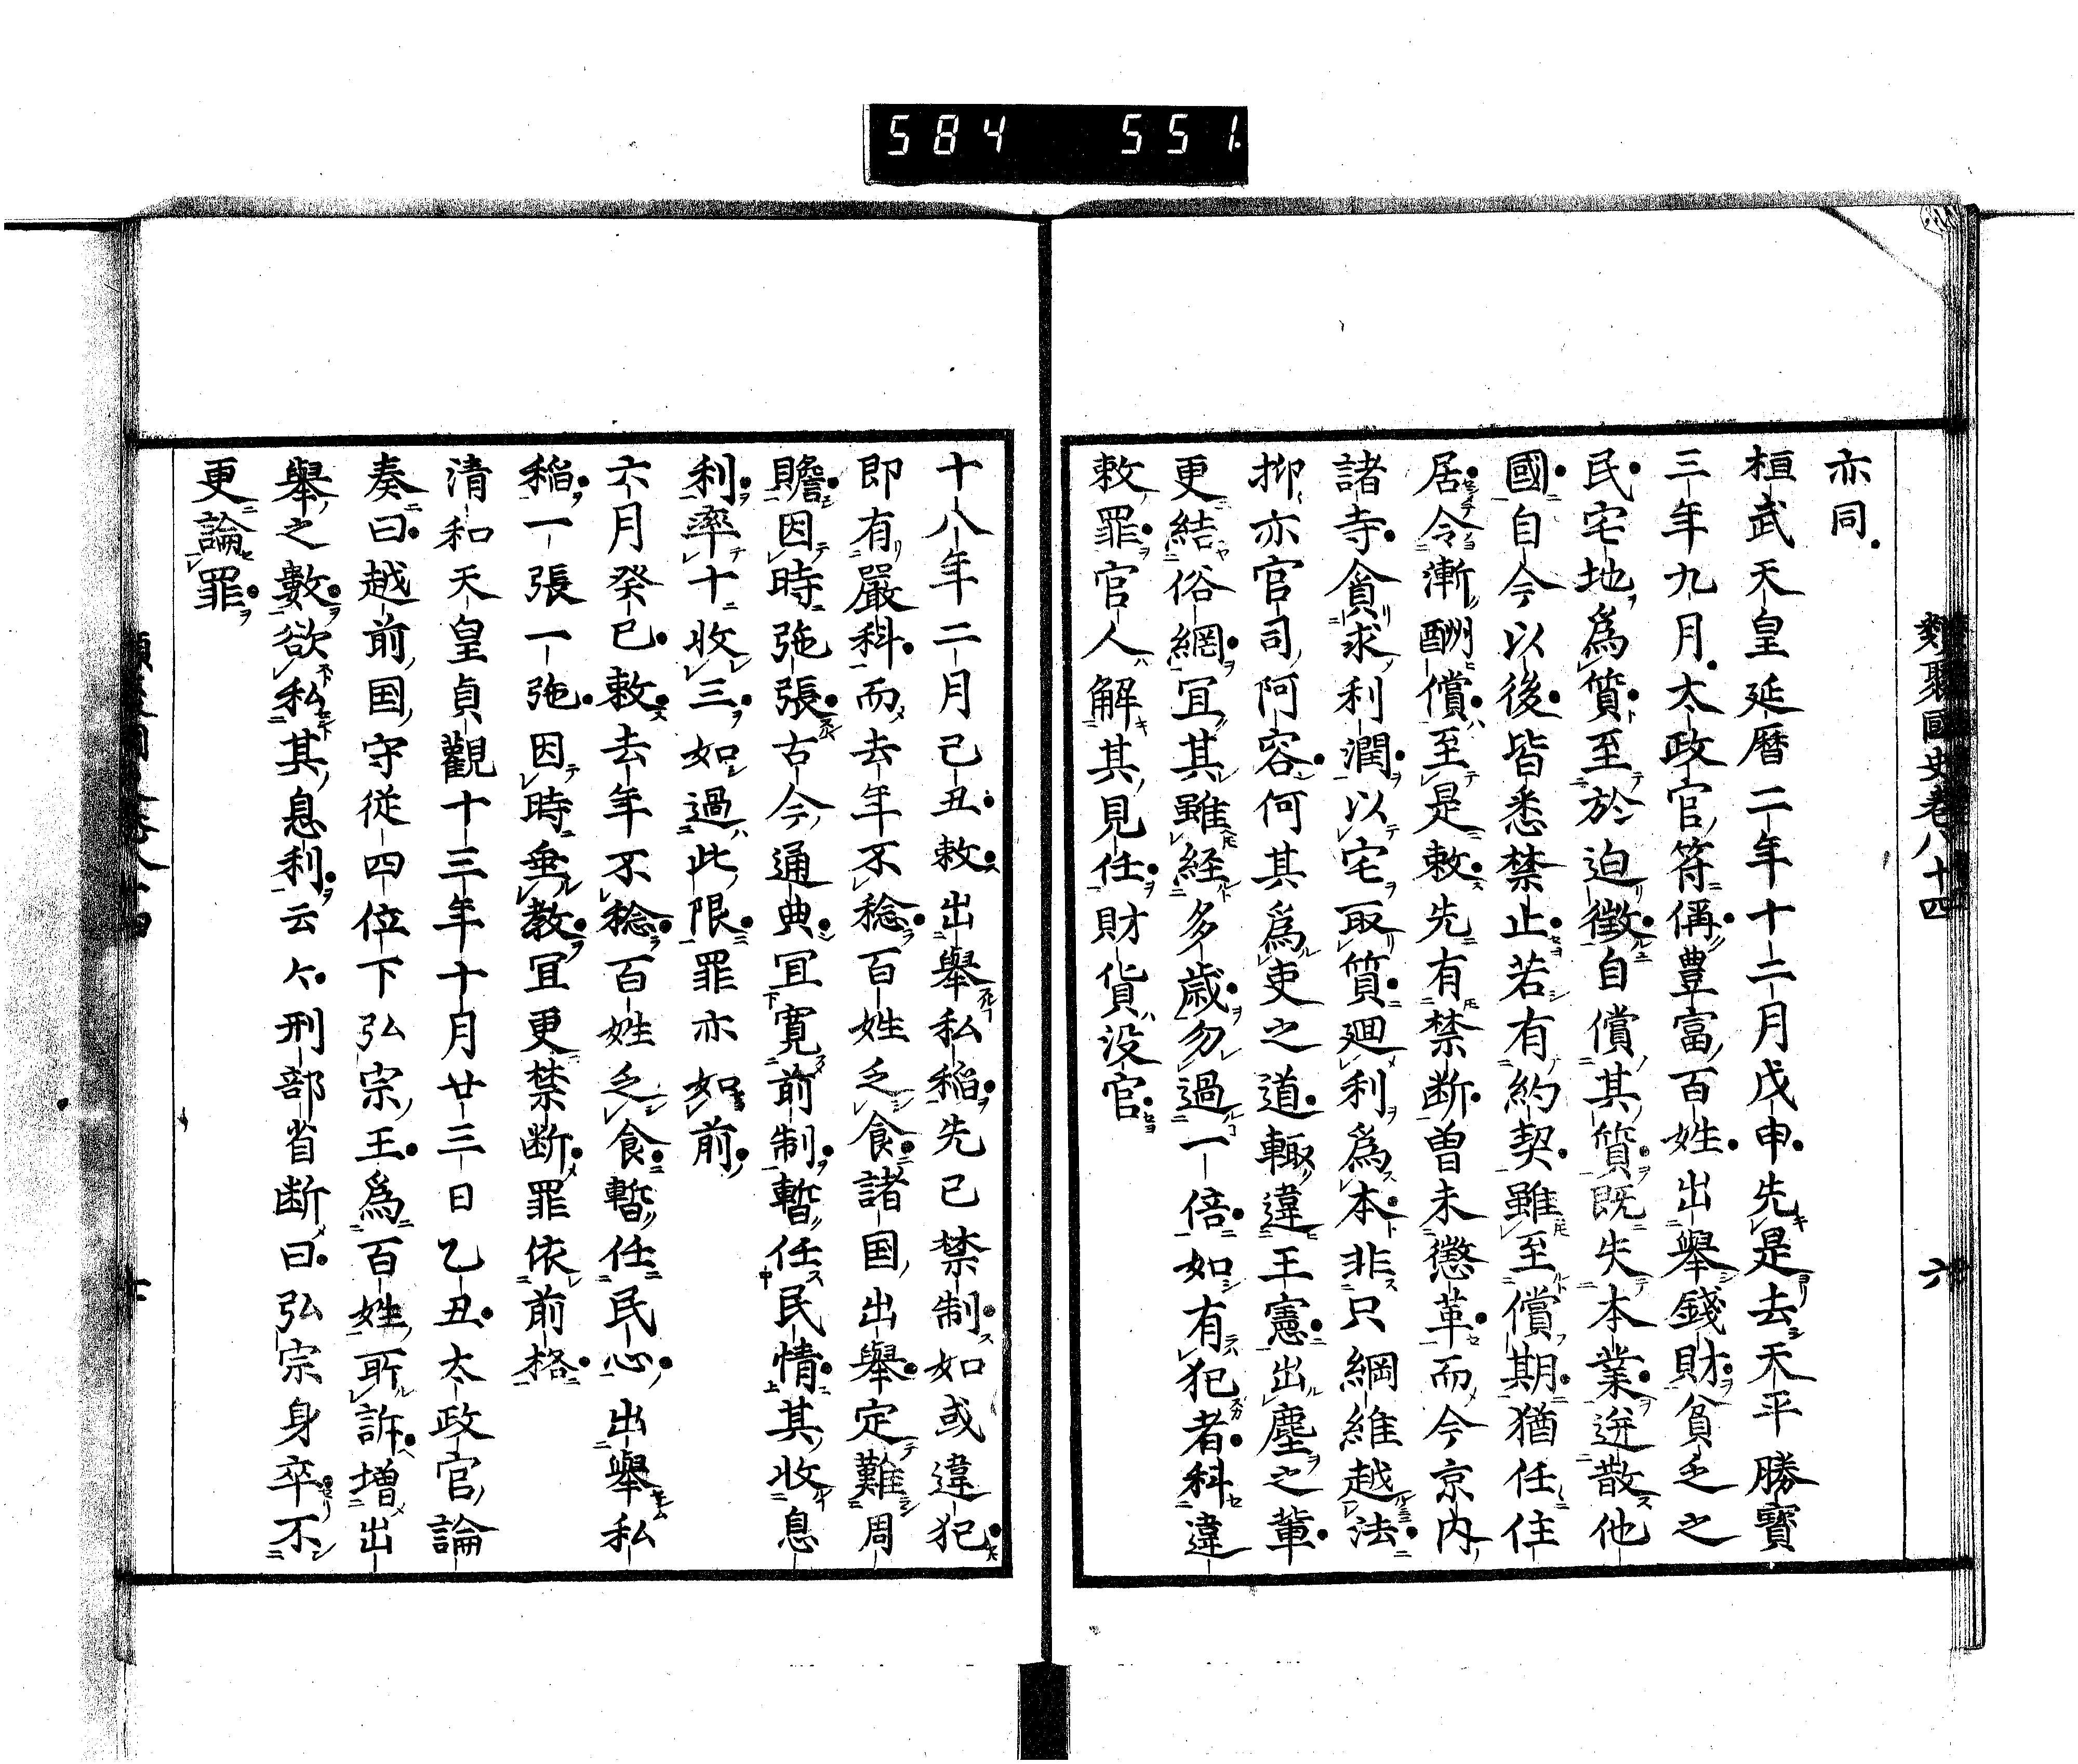 584 551
類聚國史卷八十四 六
亦同
桓武天皇延暦二年十二月戊申先是去天平勝寳
三年九月太政官符偁豊富百姓出舉錢財貧乏之
民宅地爲質至於迫徴自償其質既失本業迸散他
國自今以後皆悉禁止若有約契雖至償期猶任住
居令漸酬償至是敕先有禁断曽未懲革而今京内
諸寺貪求利潤以宅取質廻利爲本非只綱維越法
抑亦官司阿容何其爲吏之道輙違王憲出塵之輩
更結俗網冝其雖経多歳勿過一倍如有犯者科違
敕罪官人解其見任財貨没官
十八年二月己丑敕出舉私稲先已禁制如或違犯
即有嚴科而去年不稔百姓乏食諸国出舉定難周
贍因時弛張古今通典冝寛前制暫任民情其收息
利率十收三如過此限罪亦如前
六月癸巳敕去年不稔百姓乏食暫任民心出舉私
稲一張一弛因時垂教冝更禁断罪依前格
清和天皇貞觀十三年十月廿三日乙丑太政官論
奏曰越前国守従四位下弘宗王爲百姓所訴增出
舉之數欲私其息利云々刑部省断曰弘宗身卒不
更論罪